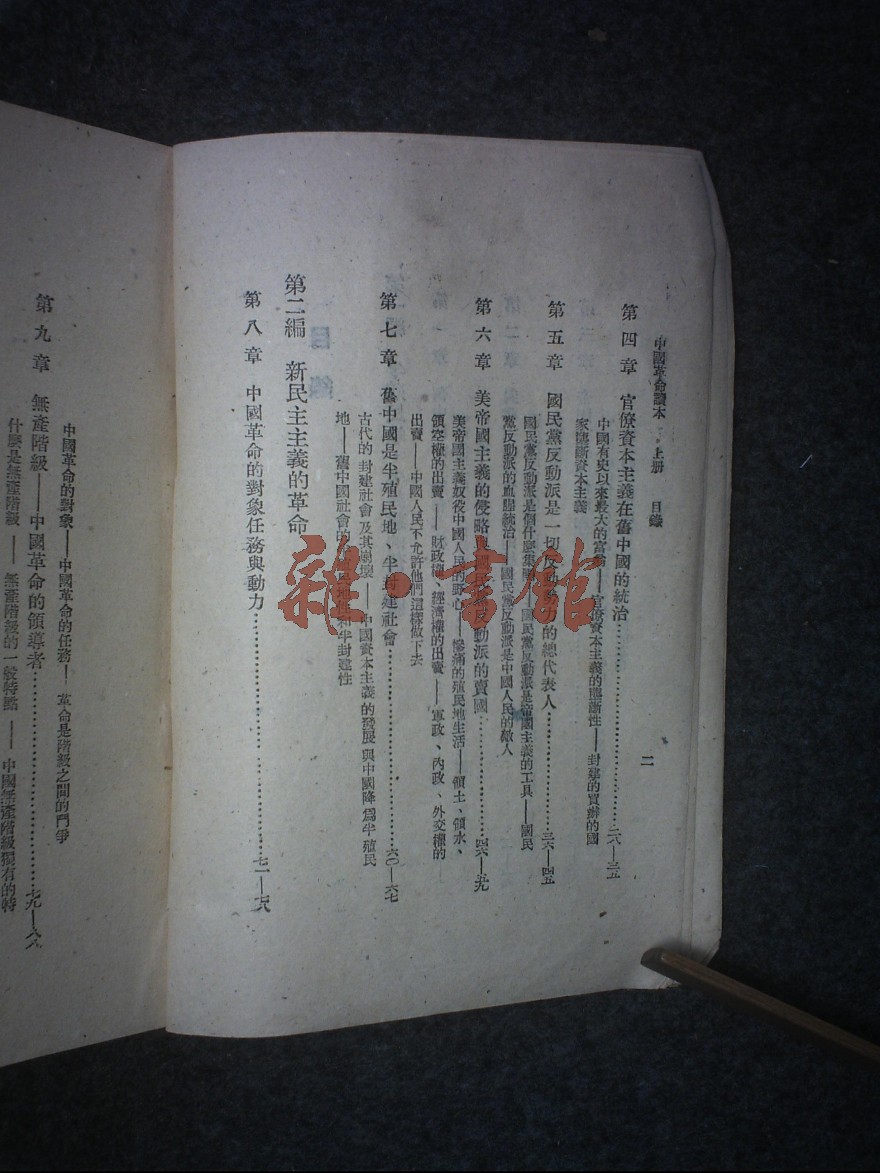 中國革命讀本 上册 目錄
二
第四章 官僚資本主義在舊中國的統治……二八—三五
中國有史以來最大的富翁——官僚資本主義的壟斷性——封建的買辦的國
家壟斷資本主義
第五章 國民黨反動派是一切反動勢力的總代表人……三六—四五
國民黨反動派是個什麼集團——國民黨反動派是帝國主義的工具——國民
黨反動派的血腥統治——國民黨反動派是中國人民的敵人
第六章 美帝國主義的侵略與國民黨反動派的賣國……四六—五九
美帝國主義奴役中國人民的野心——慘痛的殖民地生活——領土、領水、
領空權的出賣——財政權、經濟權的出賣——軍政、內政、外交權的
出賣——中國人民不允許他們這樣做下去
第七章 舊中國是半殖民地、半封建社會……六〇—六七
古代的封建社會及其崩壞——中國資本主義的發展與中國降爲半殖民
地——舊中國社會的半殖民地性和半封建性
第二編 新民主主義的革命
第八章 中國革命的對象任務與動力……七一—七八
中國革命的對象——中國革命的任務——革命是階級之間的鬥爭
第九章 無產階級——中國革命的領導者……七九—八八
什麼是無產階級——無產階級的一般特點——中國無產階級獨有的特
雜·書館